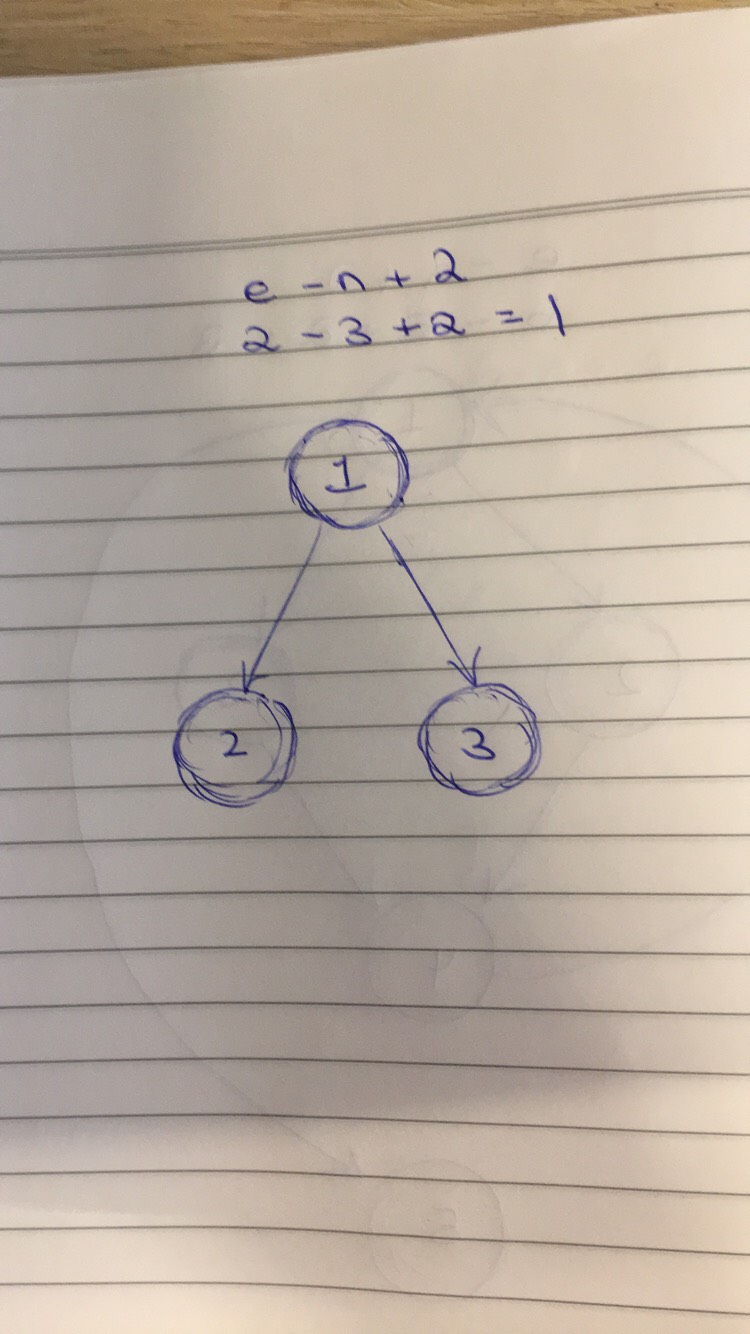 e - n + 2
2 - 3 + 2 = 1
1
2
3